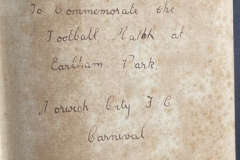 To Commemorate the
Football Match at
Earlham Park.
Norwich City F C
Carnival